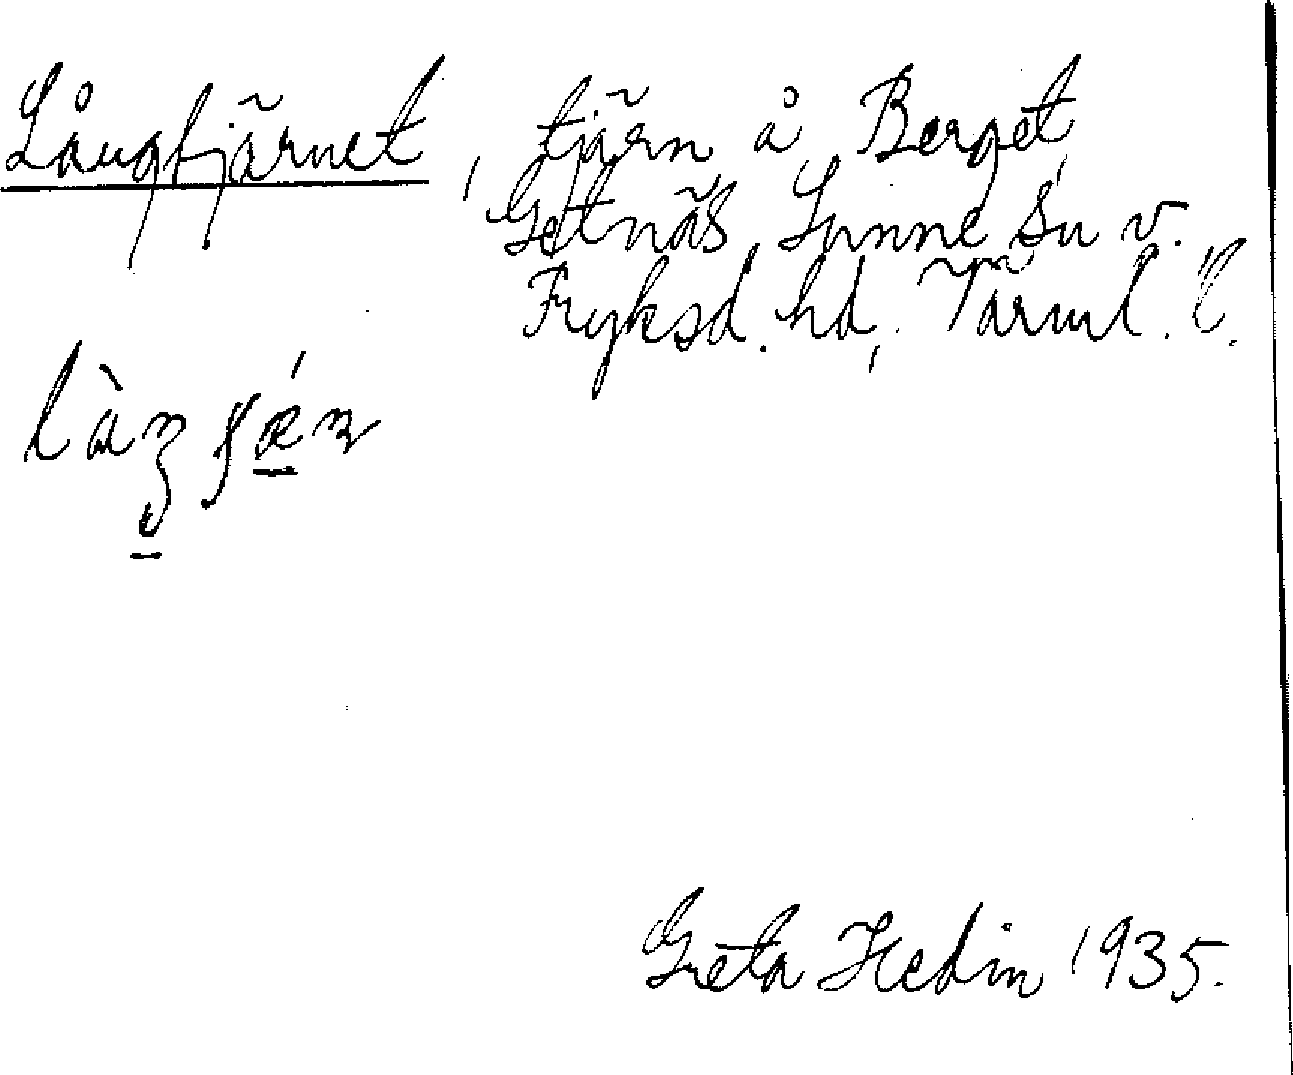 Långtjärnet, tjärn å Berget,
Getnäs, Sunne sn v.
Fryksd. hd, Värml. l.
Greta Hedin 1935.